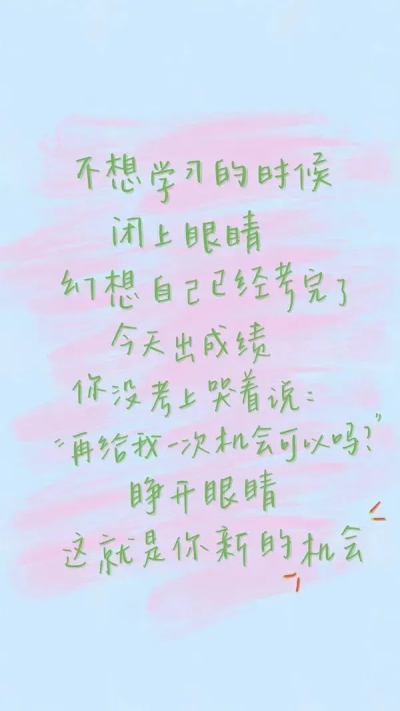 不想学习的时候
闭上眼睛
幻想自己已经考完了
今天出成绩
你没考上哭着说：
“再给我一次机会可以吗？”
睁开眼睛
这就是你新的机会